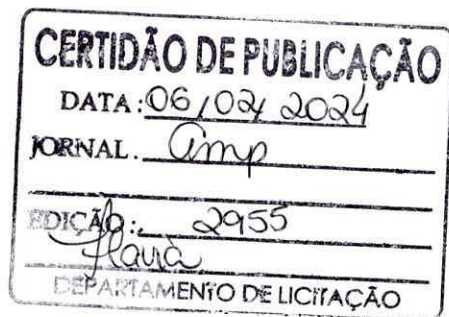 CERTIDÃO DE PUBLICAÇÃO
DATA: 06/02/2024
JORNAL. Amp
EDIÇÃO: 2955
Flavia
DEPARTAMENTO DE LICITAÇÃO